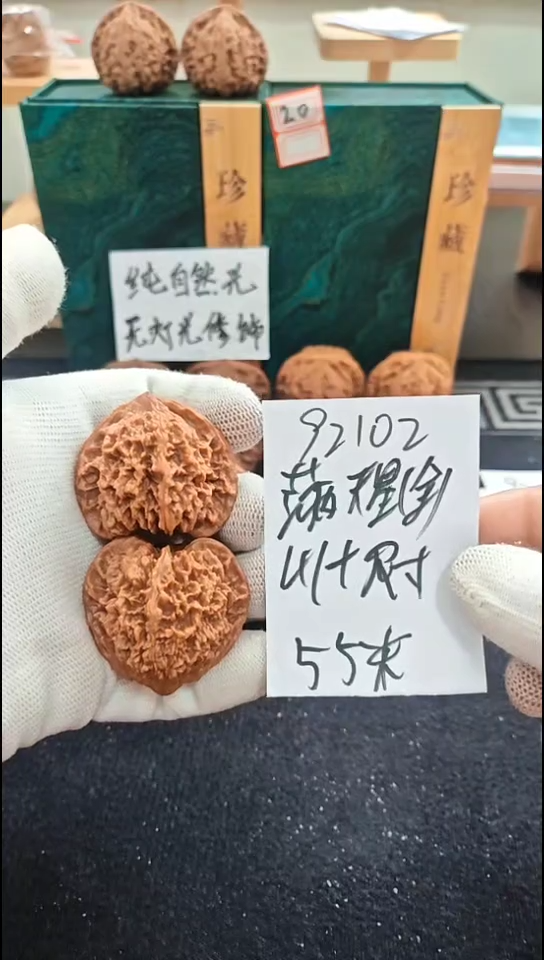 20
珍藏
珍藏
纯自然光
无灯光修饰
92102
满天星(金)
4十尺寸
55米